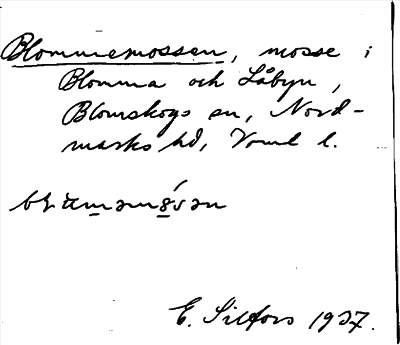 Blommemossen, mosse i
Blomma och Låbyn,
Blomskogs sn, Nord-
marks hd, Verml l.
E. Silfors 1927.